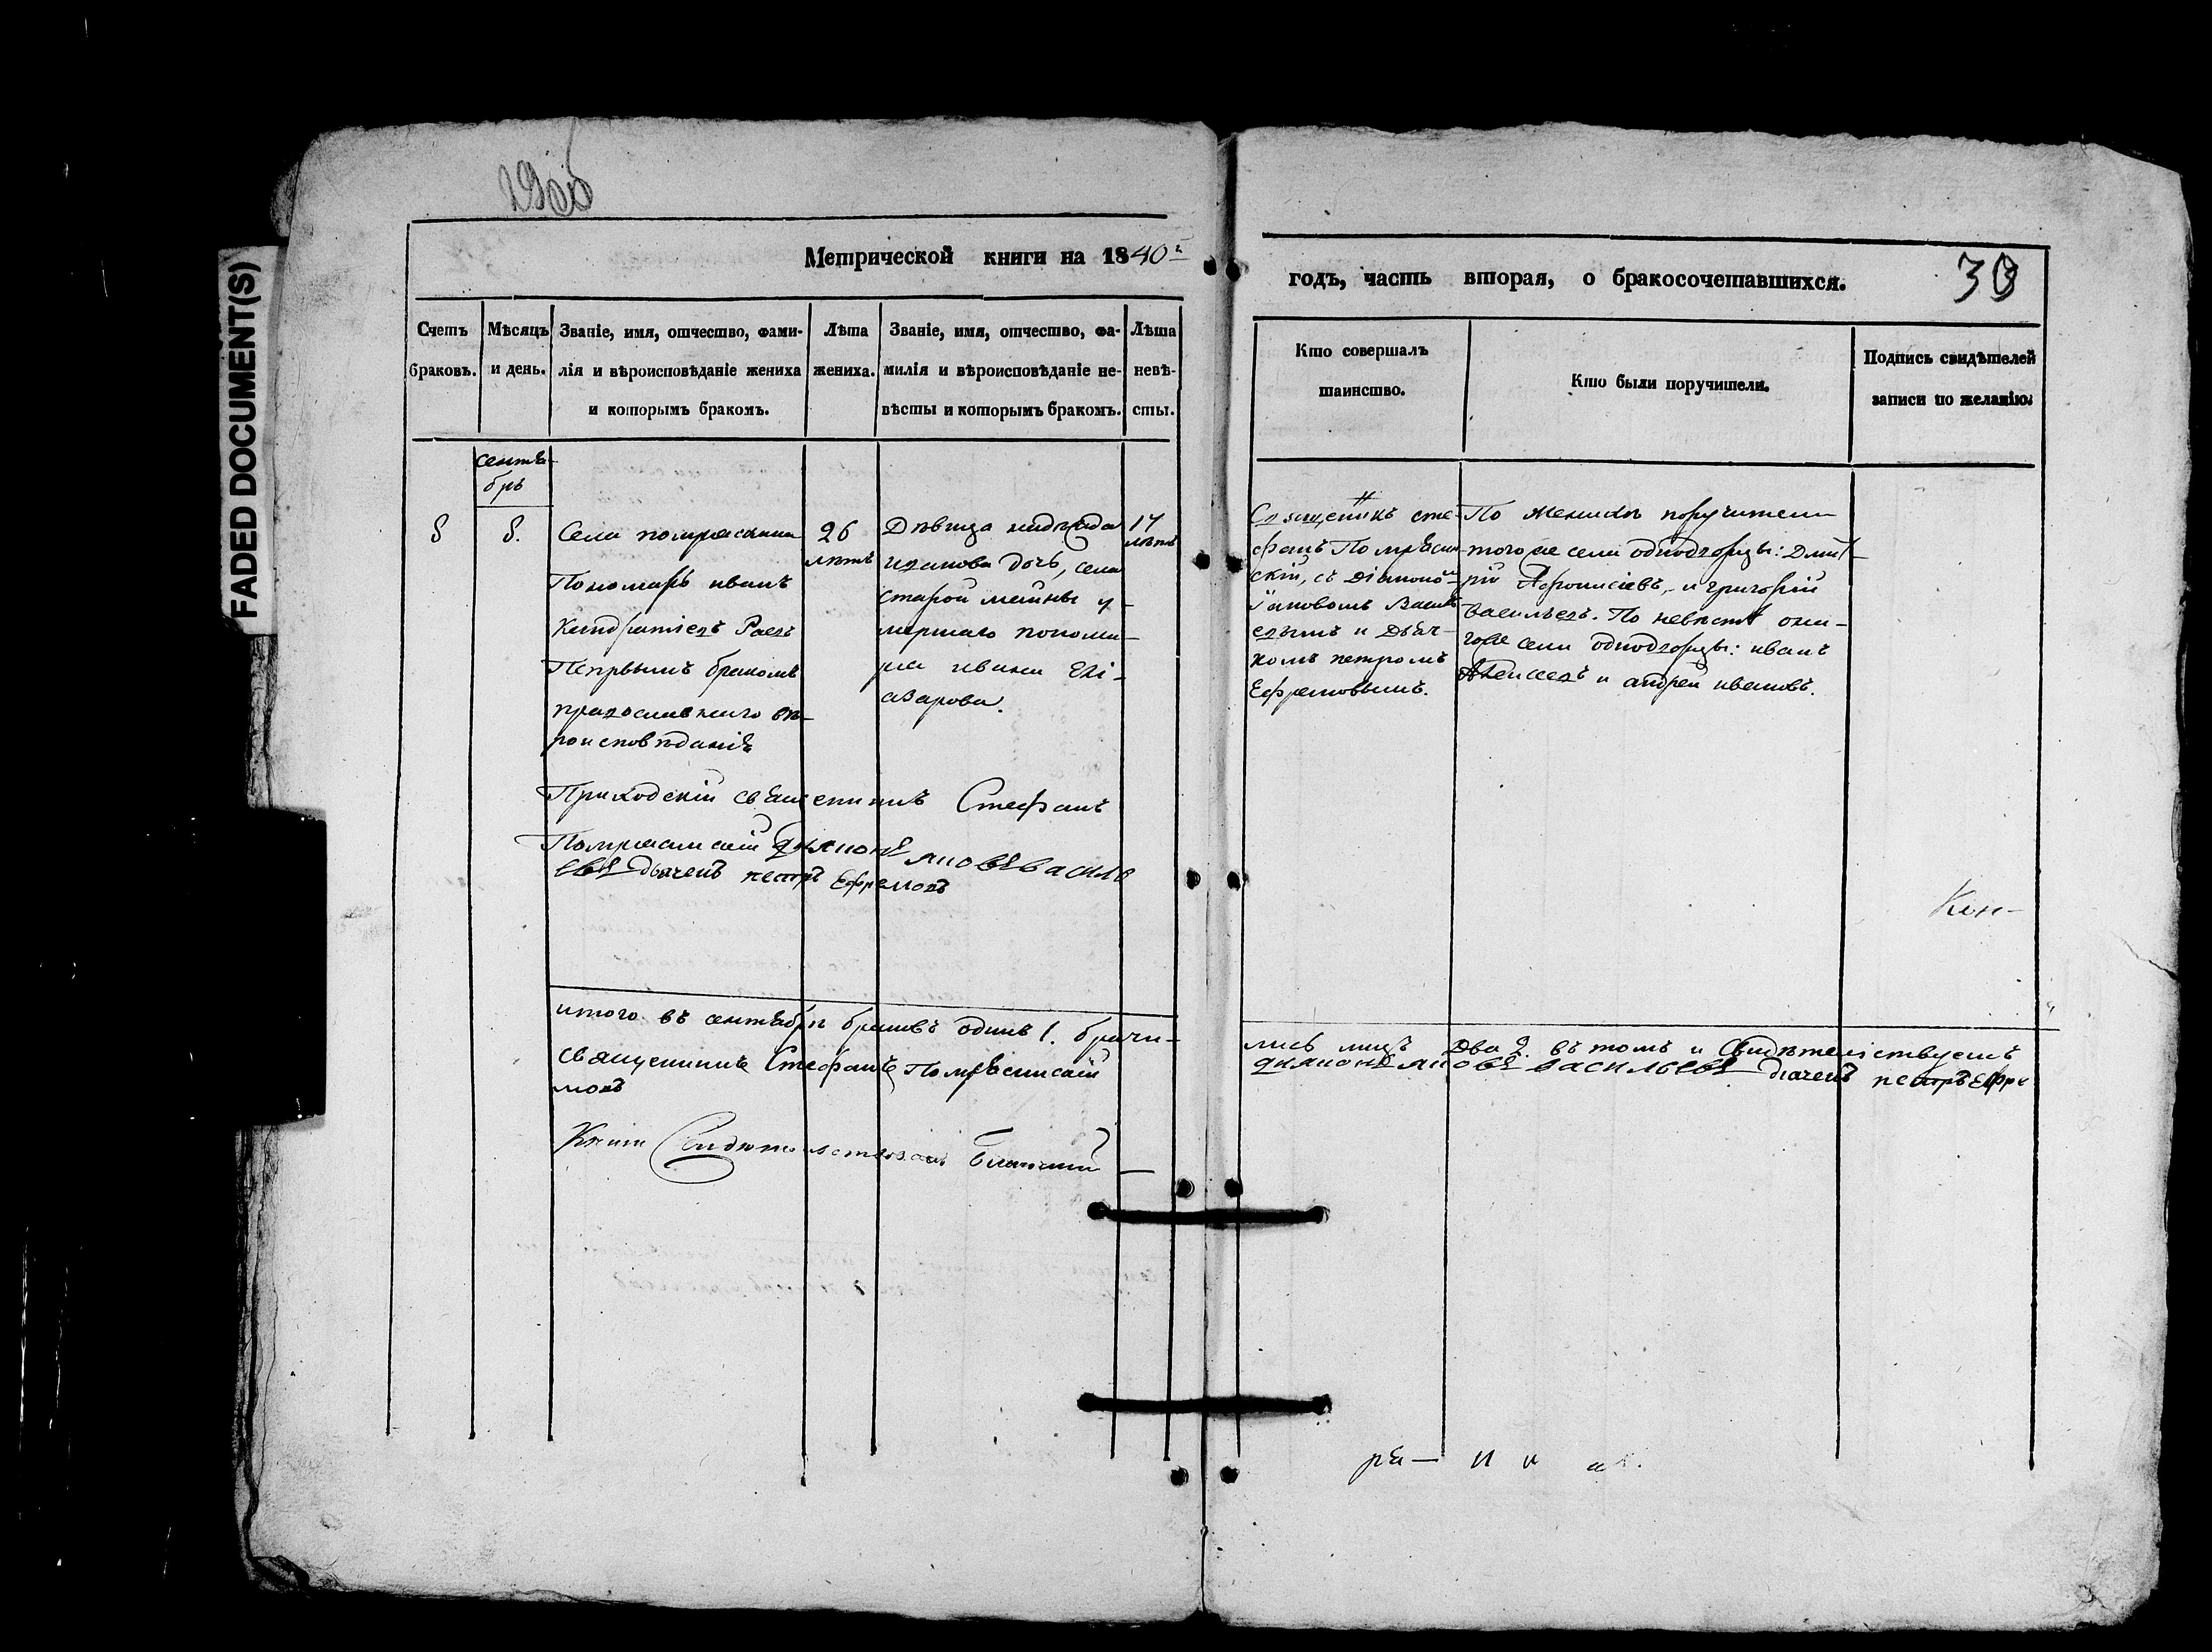 FADED DOCUMENT(S)
Метрической книги на 1840й
годъ, часть вторая, о бракосочетавшихся.
Счетъ
браковъ.
Мѣсяцъ
и день.
Званіе, имя, отчество, фами-
лія и вѣроисповѣданіе жениха
и которымъ бракомъ.
Лѣта
жениха.
Званіе, имя, отчество, фа-
милія и вѣроисповѣданіе не-
вѣсты и которымъ бракомъ.
Лѣта
невѣ-
сты.
Кто совершалъ
таинство.
Кто были поручители.
Подпись свидѣтелей
записи по желанію.
сентя-
брь
8
8.
Села потряскина
Пономарь иванъ
Раевъ
Первымъ бракомъ
православнаго вѣ-
роисповѣданія
26
лѣтъ
Дѣвица надежда
иванова дочь, села
старой майны у-
мершаго понома-
ря ивана
азарова.
17
лѣтъ
Священикъ сте-
фанъ Потрясин-
скій, съ діакономъ
Іаковомъ Василь-
евымъ и дьяч-
комъ петромъ
Ефремовымъ.
По женихѣ поручители
тогоже села однодворцы: Дмит-
рій Афонасіевъ, и григорій
васильевъ. По невестѣ она-
гоже села однодворцы: иванъ
Алексеевъ и андрей ивановъ.
Приходскій священникъ Стефанъ
Потрясинскій диаконъ яковъ василь
евъ дьячекъ петръ Ефремовъ
Кон-
итого въ сентябрѣ браковъ одинъ 1. брачи-
лись лицъ два 2. въ томъ и свидѣтельствуемъ
священникъ Стефанъ Потрясинскій
диаконъ яковъ васильевъ дьячекъ петръ Ефре
мовъ
Книги Свидетельствовалъ